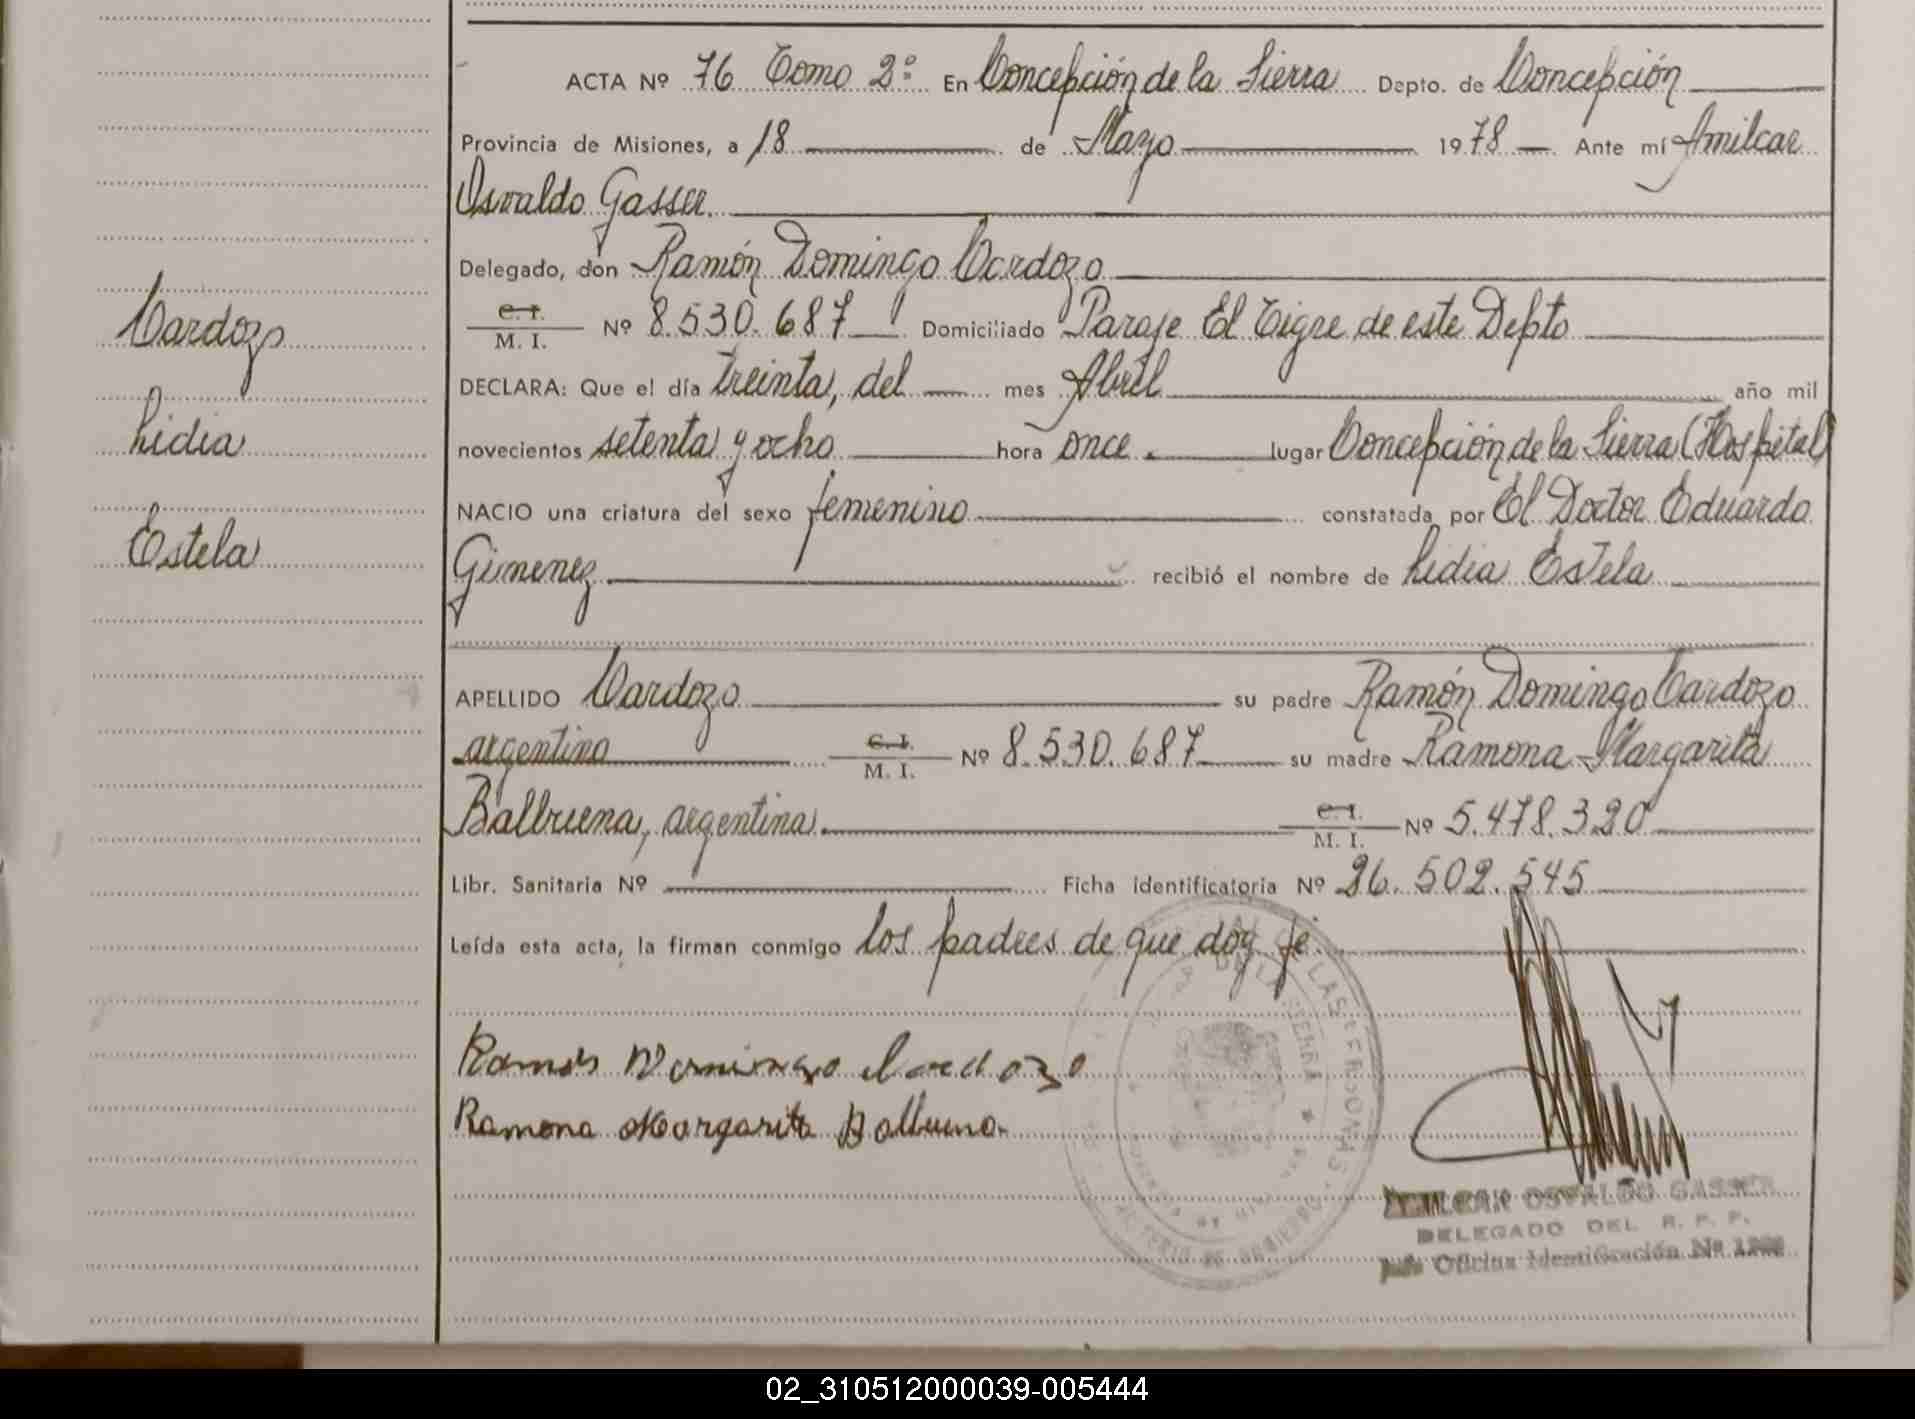 ACTA Nº 76 Tomo 2º En Concepción de la Sierra Depto. de Concepción
Provincia de Misiones, a 18 de Mayo 1978 Ante mí Amilcar
Osvaldo Gasser
Delegado, don Ramón Domingo Cardozo
C. I.
M. I. Nº 8.530.687 Domiciliado Paraje El Tigre de este Depto
DECLARA: Que el día treinta, del mes Abril año mil
novecientos setenta y ocho hora once. lugar Concepción de la Sierra (Hospital)
NACIO una criatura del sexo femenino constatada por El Doctor Eduardo
Gimenez recibió el nombre de Lidia Estela
APELLIDO Cardozo su padre Ramón Domingo Cardozo
argentino C. I. M. I. Nº 8.530.687 su madre Ramona Margarita
Balbuena, argentina C. I. M. I. Nº 5.478.320
Libr. Sanitaria Nº Ficha identificatoria Nº 26.502.545
Leída esta acta, la firman conmigo los padres de que doy fé
Cardozo
Lidia
Estela
Ramón Domingo Cardozo
Ramona Margarita Balbuena
DE LA SIERRA
LAS PERSONAS
AMILCAR OSVALDO GASSER
DELEGADO DEL R. P. P.
Jefe Oficina Identificación Nº
02_310512000039-005444